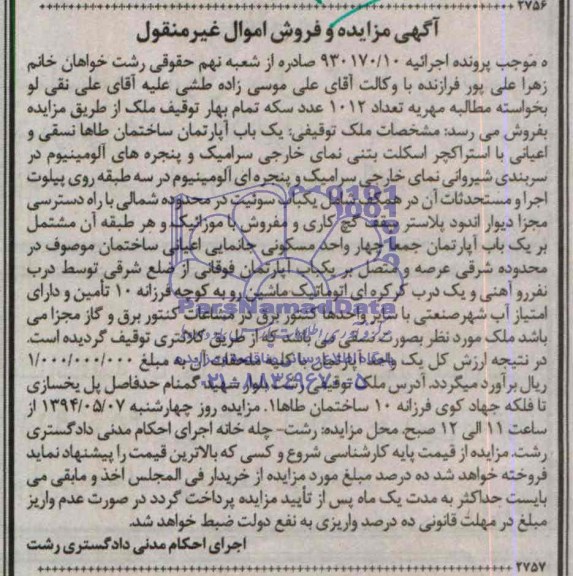 ۲۷۵۶
آگهی مزایده و فروش اموال غیرمنقول
ه موجب پرونده اجرائیه ۹۳۰۱۷۰/۱۰ صادره از شعبه نهم حقوقی رشت خواهان خانم
زهرا علی پور فرازنده با وکالت آقای علی موسی زاده طشی علیه آقای علی نقی لو
بخواسته مطالبه مهریه تعداد ۱۰۱۲ عدد سکه تمام بهار توقیف ملک از طریق مزایده
بفروش می رسد: مشخصات ملک توقیفی: یک باب آپارتمان ساختمان طاها نسقی و
اعیانی با استراکچر اسکلت بتنی نمای خارجی سرامیک و پنجره های آلومینیوم در
سربندی شیروانی نمای خارجی سرامیک و پنجره ای آلومینیوم در سه طبقه روی پیلوت
اجرا و مستحدثات آن در همکف شامل یکباب سوئیت در محدوده شمالی با راه دسترسی
مجزا دیوار اندود پلاستر سقف گچ کاری و مفروش با موزائیک و هر طبقه آن مشتمل
بر یک باب آپارتمان جمعا چهار واحد مسکونی جانمایی اعیانی ساختمان موصوف در
محدوده شرقی عرصه و متصل بر یکباب آپارتمان فوقانی از ضلع شرقی توسط درب
نفررو آهنی و یک درب کرکره ای اتوماتیک ماشین رو به کوچه فرزانه ۱۰ تأمین و دارای
امتیاز آب شهرصنعتی با سایر واحدها کنتور برق در مشاعات کنتور برق و گاز مجزا می
باشد ملک مورد نظر بصورت نسقی می باشد که از طریق کلانتری توقیف گردیده است.
در نتیجه ارزش کل یک واحد آپارتمان با کلیه متعلقات آن به مبلغ ۱/۰۰۰/۰۰۰/۰۰۰
ریال برآورد میگردد. آدرس ملک توقیفی رشت بلوار شهید گمنام حدفاصل پل یخسازی
تا فلکه جهاد کوی فرزانه ۱۰ ساختمان طاها۱. مزایده روز چهارشنبه ۱۳۹۴/۰۵/۰۷ از
ساعت ۱۱ الی ۱۲ صبح. محل مزایده: رشت- چله خانه اجرای احکام مدنی دادگستری
رشت. مزایده از قیمت پایه کارشناسی شروع و کسی که بالاترین قیمت را پیشنهاد نماید
فروخته خواهد شد ده درصد مبلغ مورد مزایده از خریدار فی المجلس اخذ و مابقی می
بایست حداکثر به مدت یک ماه پس از تأیید مزایده پرداخت گردد در صورت عدم واریز
مبلغ در مهلت قانونی ده درصد واریزی به نفع دولت ضبط خواهد شد.
اجرای احکام مدنی دادگستری رشت
۲۷۵۷
ParsNamadData
۰۲۱-۸۸۳۴۹۶۷۰-۵